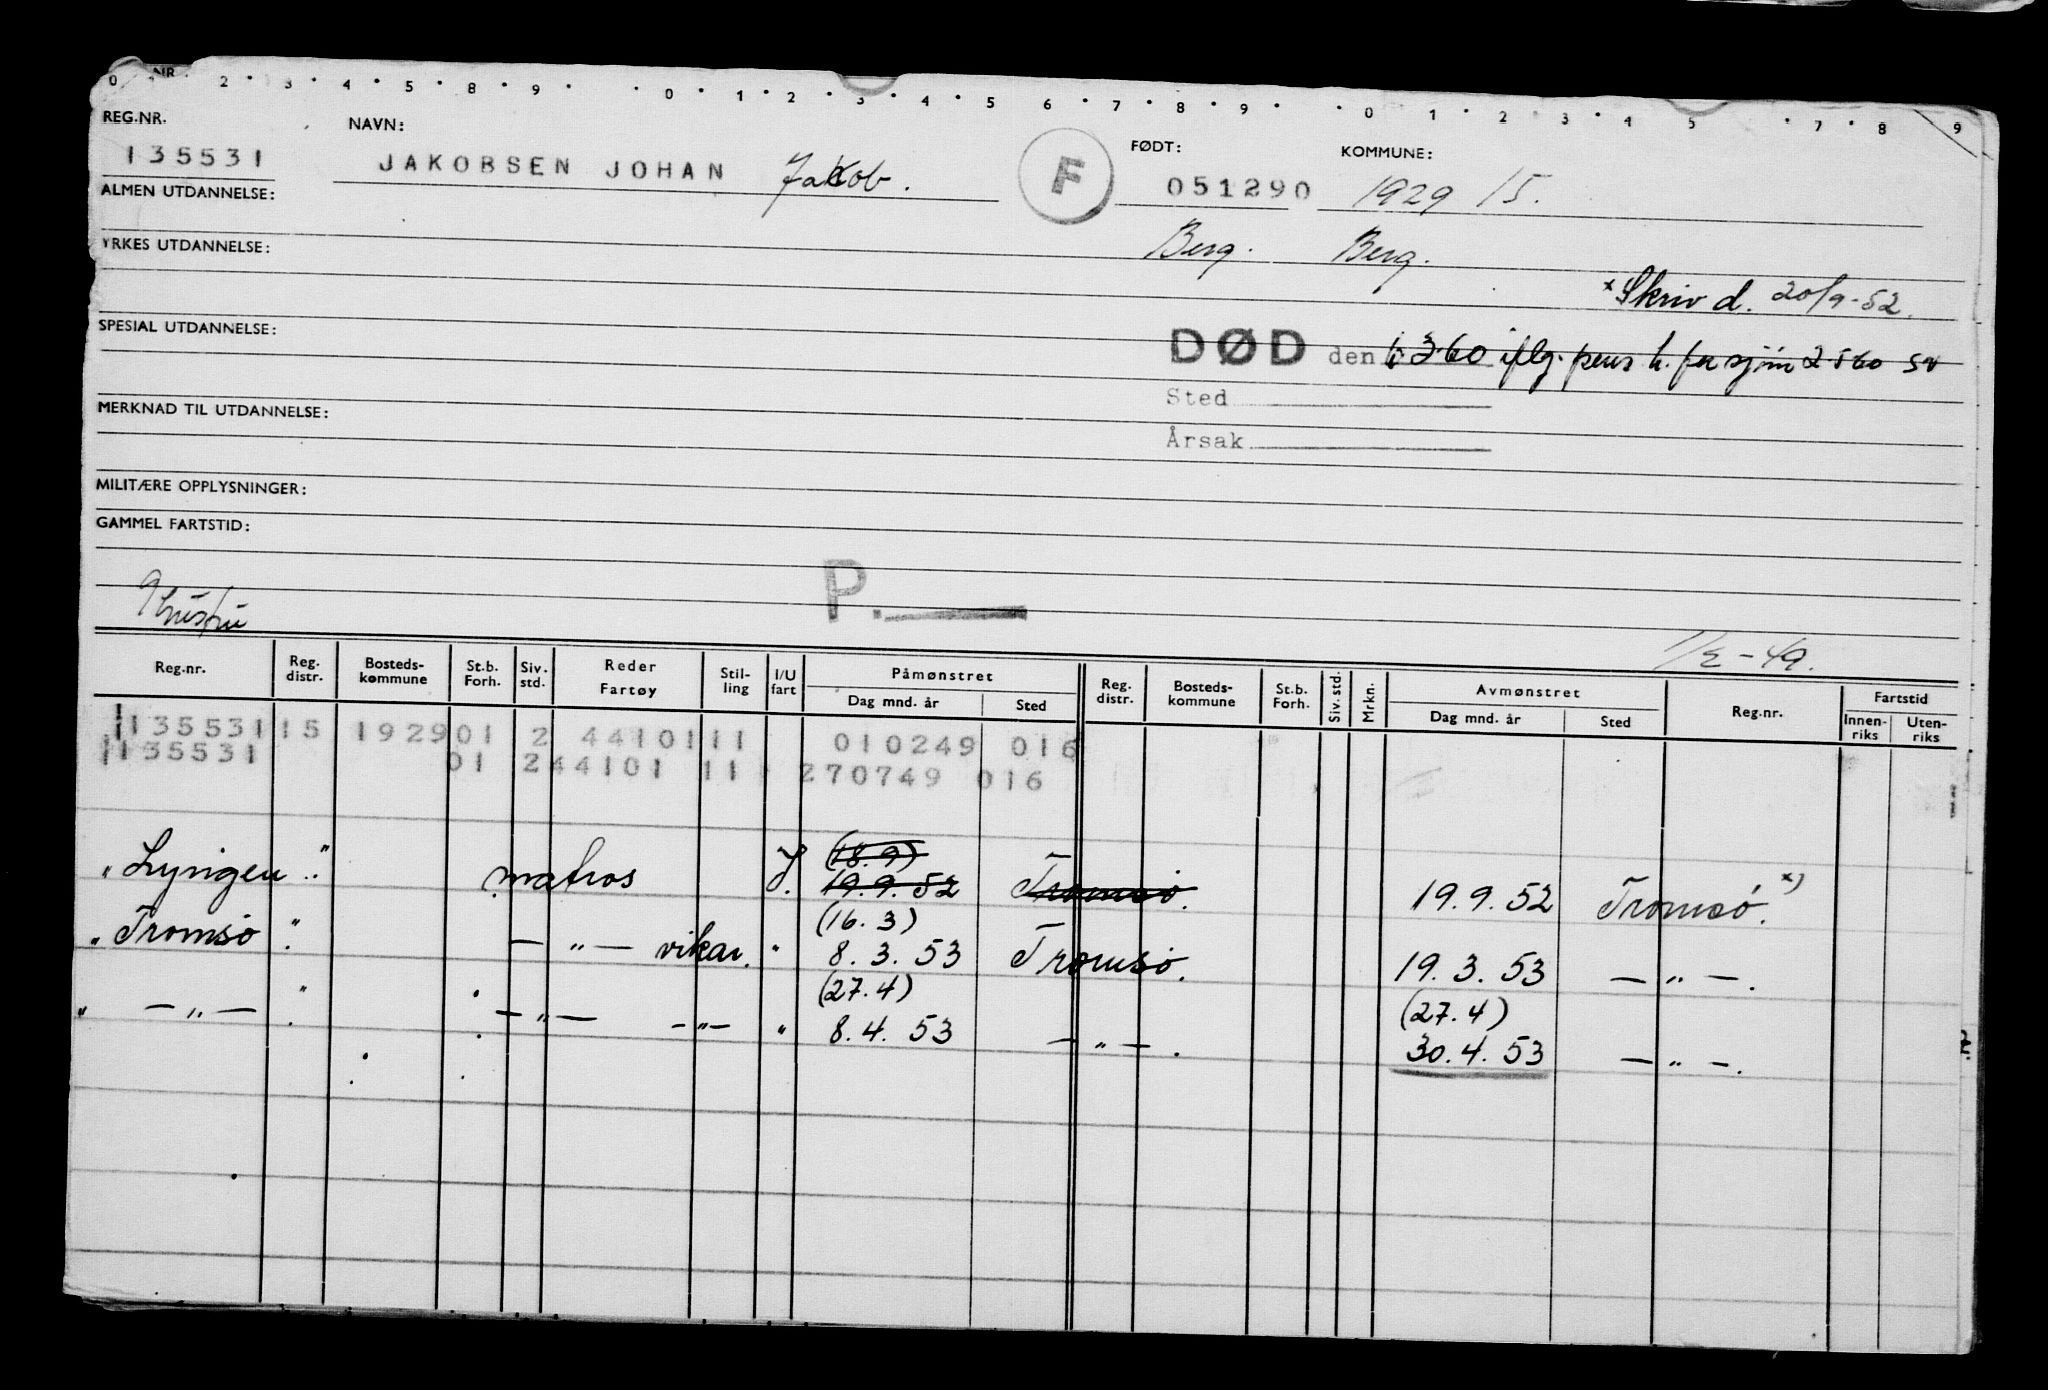 0 NR. 2 • 3 • 4 • 5 • 8 • 9 • • 0 • 1 • 2 • 3 • 4 • 5 6 • 7 • 8 • 9 • • 0 1 • 2 • 3 • 4 5 • 7 • 8 9
REG.NR. NAVN: FØDT: KOMMUNE:
135531 JAKOBSEN JOHAN Jakob. F 051290 1929 15.
ALMEN UTDANNELSE:
YRKES UTDANNELSE: Berg. Berg.
x Skriv d. 20/9-52.
SPESIAL UTDANNELSE:
DØD den 3.60 iflg. pens h. for sjøm 2.560
Sted
MERKNAD TIL UTDANNELSE:
Årsak
MILITÆRE OPPLYSNINGER:
GAMMEL FARTSTID:
P.
-49.
Reg.nr. Reg. distr. Bosteds-kommune St.b. Forh. Siv. std. Reder Fartøy Stil-ling I/U fart Påmønstret Reg. distr. Bosteds-kommune St.b. Forh. Siv. std. Mrkn. Avmønstret Reg.nr. Fartstid
Dag mnd. år Sted Dag mnd. år Sted Innen-riks Uten-riks
135531 15 1929 01 2 44101 11 010249 016
135531 01 2 44101 11 270749 016
(18.9)
„ Lyngen „ matros I. 19.9.52 Tromsø. 19.9.52 Tromsø. x)
(16.3)
„ Tromsø „ — „ — vikar. „ 8.3.53 Tromsø. 19.3.53 — „ —.
(27.4) (27.4)
„ — „ — „ — „ — — „ — „ 8.4.53 — „ —. 30.4.53 — „ —.